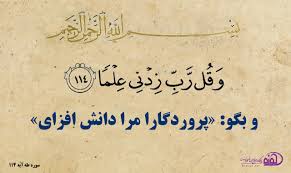 بسم الله الرحمن الرحیم
وَقُل رَّبِّ زِدْنِی عِلْمًا ﴿۱۱۴﴾
و بگو: «پروردگارا مرا دانش افزای»
سوره طه آیه ۱۱۴